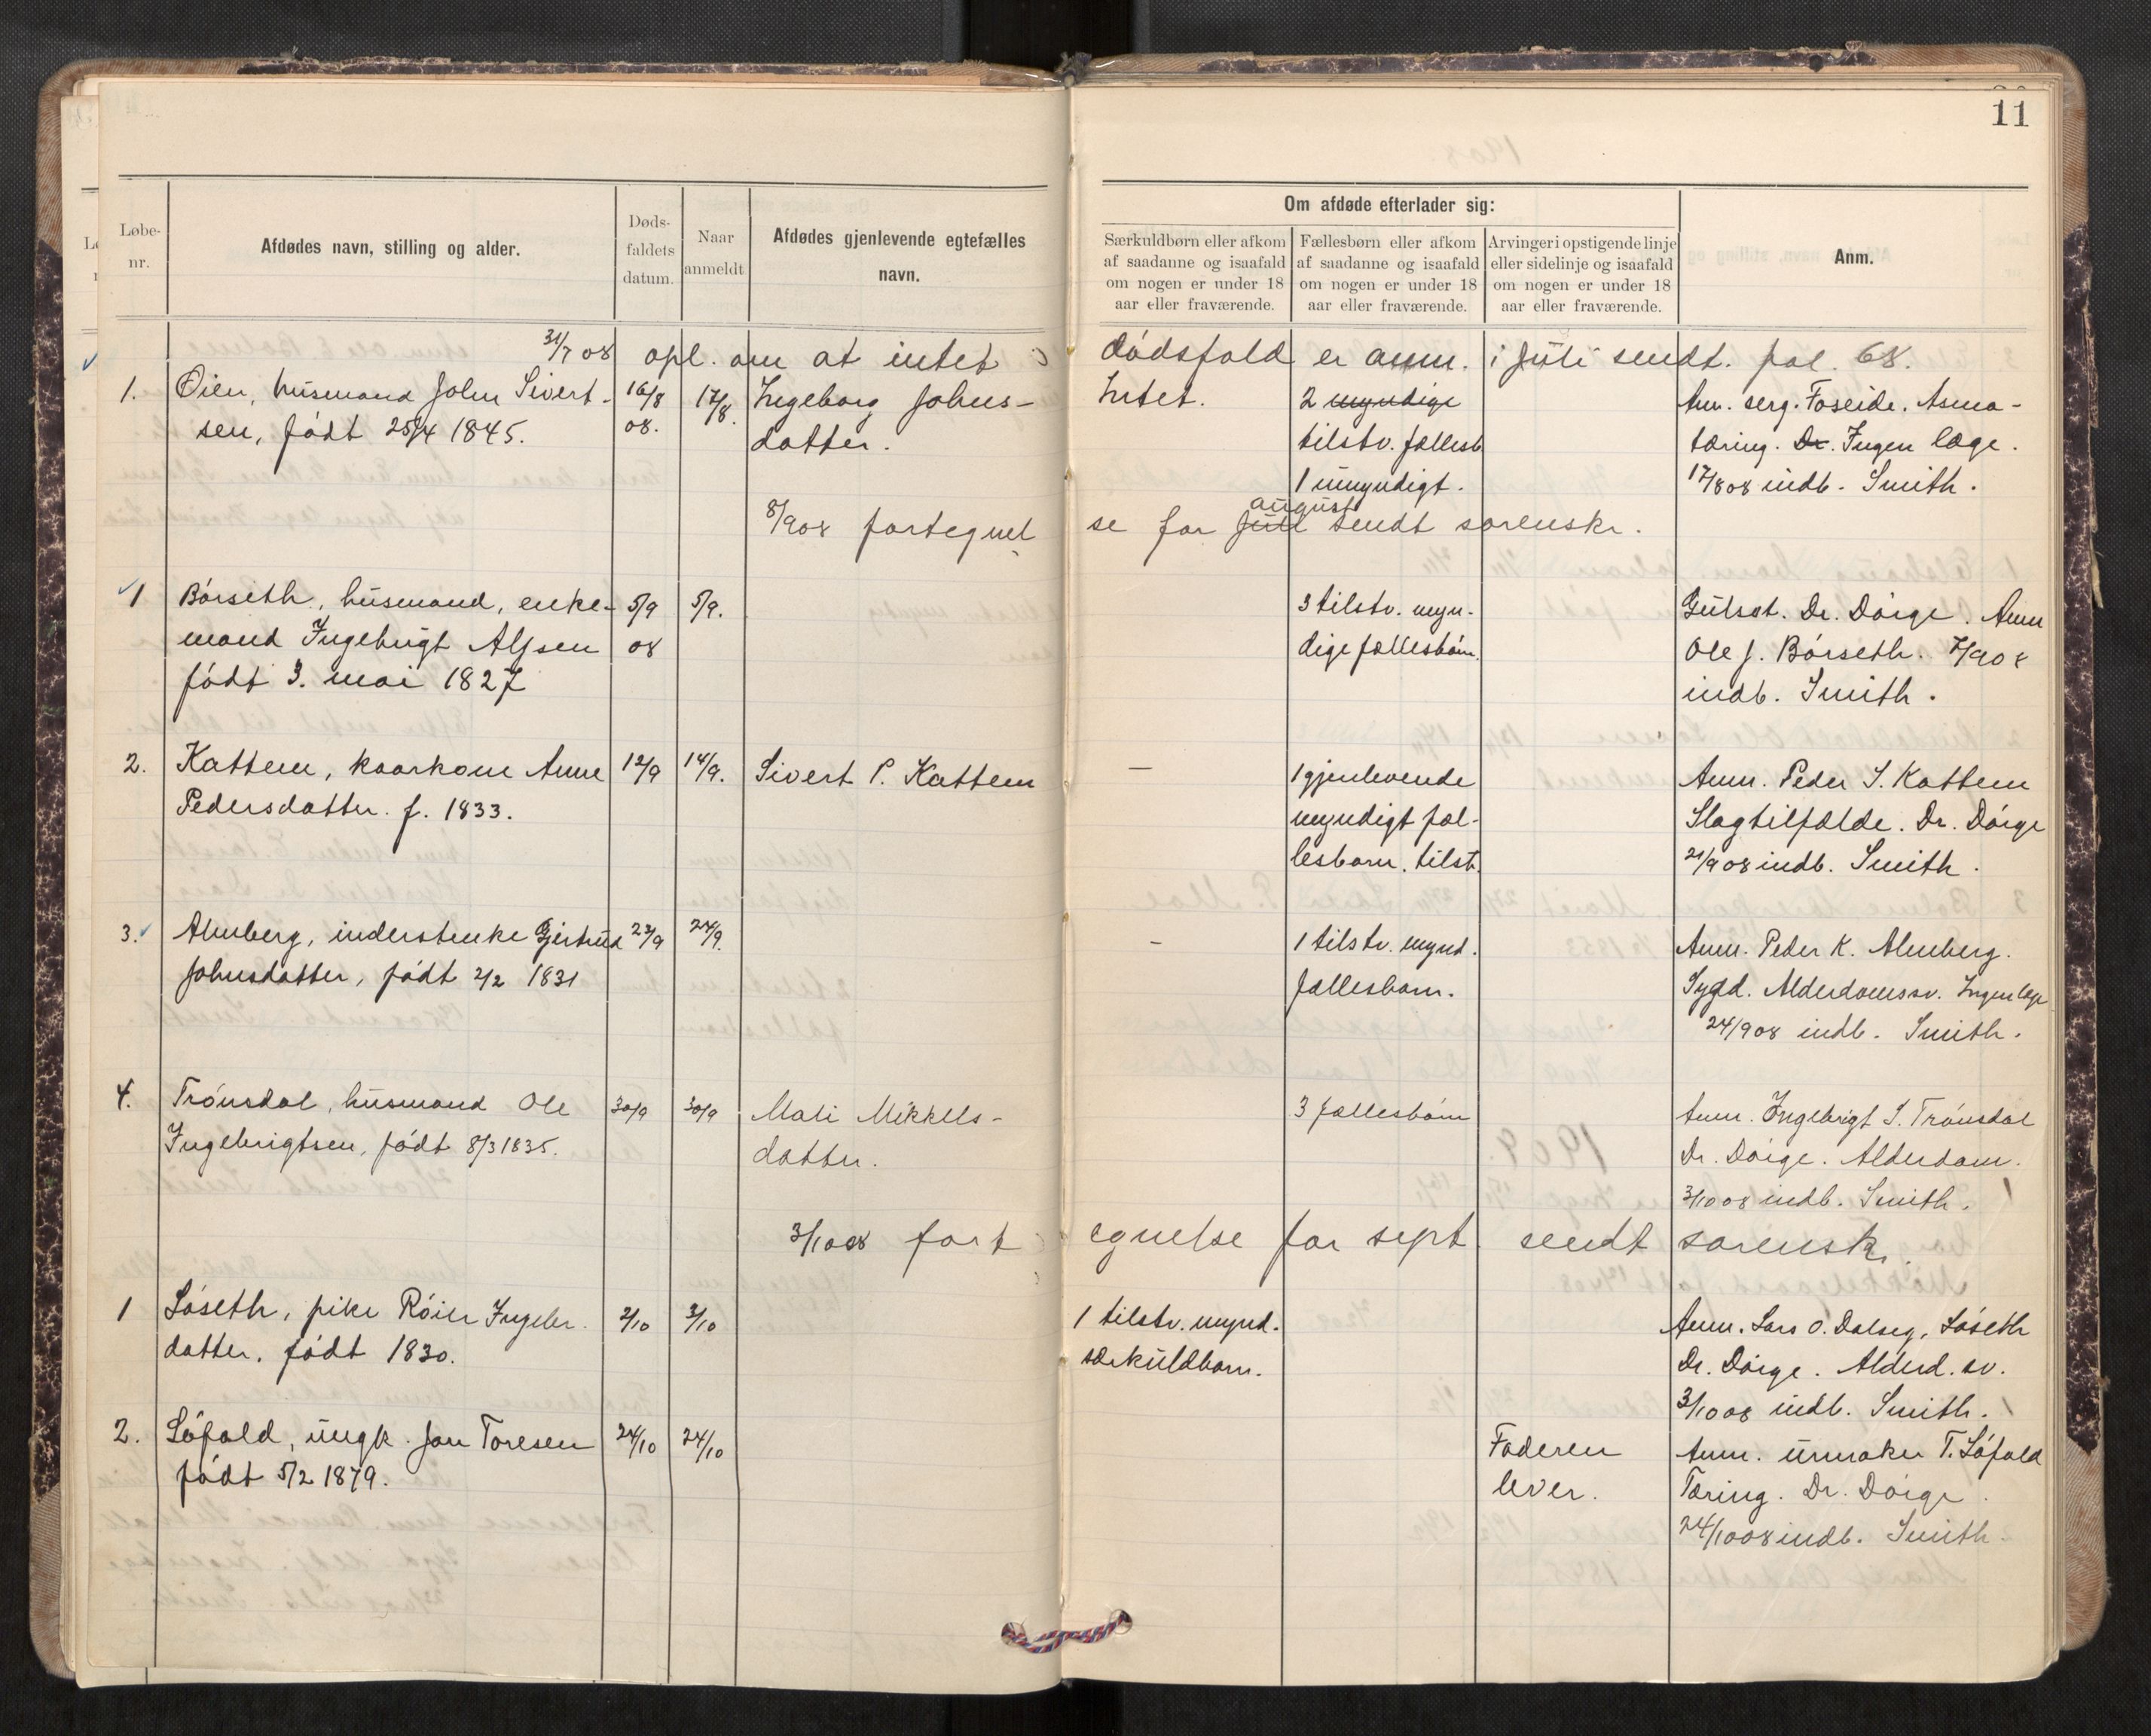 11
Løbe-
nr.
Afdødes navn, stilling og alder.
Døds-
faldets
datum.
Naar
anmeldt
Afdødes gjenlevende egtefælles
navn.
Om afdøde efterlader sig:
Særkuldbørn eller afkom
af saadanne og isaafald
om nogen er under 18
aar eller fraværende.
Fællesbørn eller afkom
af saadanne og isaafald
om nogen er under 18
aar eller fraværende.
Arvinger i opstigende linje
eller sidelinje og isaafald
om nogen er under 18
aar eller fraværende.
Anm.
31/7 08 opl. om at intet dødsfald er anm. i juli sendt. pol. 68.
1.
Øien, husmand John Sivert-
sen, født 25/4 1845.
16/8
08.
17/8.
Ingeborg Johns-
datter.
Intet.
2 myndige
tilstv. fællesb
1 umyndigt.
Anm. serg. Foseide. Asma-
tæring. Dr. Ingen læge.
17/8 08 indb. Smith.
8/9 08 fortegnel se for juli sendt sorenskr.
august
1
Børseth, husmand, enke-
mand Ingebrigt Alfsen
født 3. mai 1827
5/9
08
5/9.
3 tilstv. myn-
dige fællesbørn.
Gulsot. Dr. Dørge. Anm
Ole J. Børseth. 7/9 08
indb. Smith.
2.
Kattem, kaarkone Anne
Pedersdatter. f. 1833.
12/9
14/9.
Sivert P. Kattem
—
1 gjenlevende
myndigt fæl-
lesbarn. tilst.
Anm. Peder S. Kattem
Slagtilfælde. Dr. Dørge
21/9 08 indb. Smith.
3.
Almberg, inderstenke Gjertrud
Johnsdatter, født 2/2 1831
23/9
24/9.
-
1 tilstv. mynd.
fællesbarn.
Anm. Peder K. Almberg.
Sygd. Alderdomssv. Ingen læge
24/9 08 indb. Smith.
4.
Trønsdal, husmand Ole
Ingebrigtsen, født 8/3 1835.
30/9
30/9
Mali Mikkels-
datter.
3 fællesbørn
Anm. Ingebrigt S. Trønsdal
Dr. Dørge. Alderdom.
3/10 08 indb. Smith.
3/10 08 fort egnelse for sept sendt sorensk.
1
Løseth, pike Røier Ingebr.
datter. født 1830.
2/10
3/10
1 tilstv. mynd.
særkuldbarn.
Anm. Lars O. Dalseg, Løseth
Dr. Dørge. Alderd. sv.
3/10 08 indb. Smith.
2.
Løfald, ungk. Jon Toresen
født 5/2 1879.
24/10
24/10
Faderen
lever.
Anm. urmaker T. Løfald
Tæring. Dr. Dørge.
24/10 08 indb. Smith.